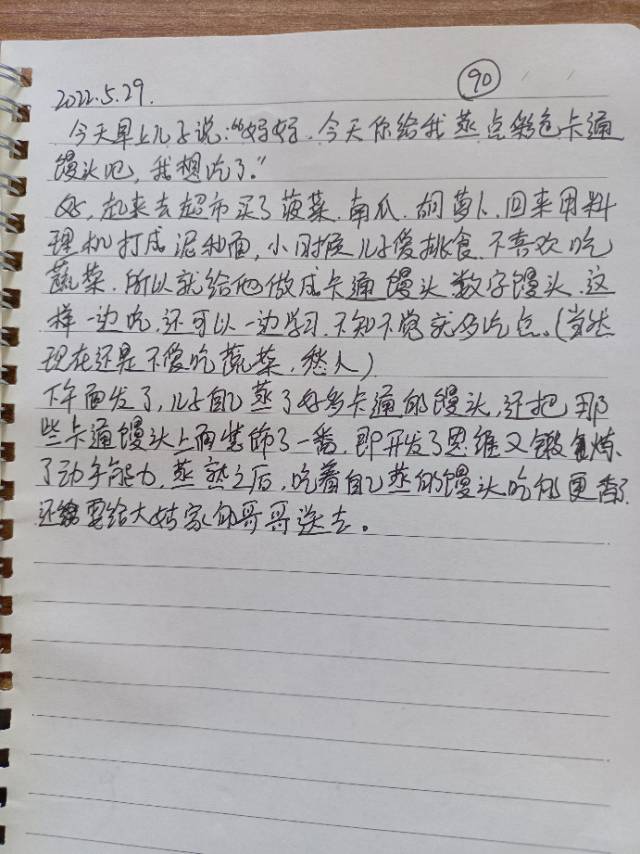 90
2022.5.29.
今天早上儿子说:“妈妈,今天你给我蒸点彩色卡通
馒头吧,我想吃了。”
好,起来去超市买了菠菜.南瓜.胡萝卜.回来用料
理机打成泥和面,小时候儿子爱挑食.不喜欢吃
蔬菜.所以就给他做成卡通馒头数字馒头.这
样一边吃.还可以一边学习.不知不觉就多吃点。(
现在还是不爱吃蔬菜.愁人)
下午面发了,儿子自己蒸了好多卡通的馒头,还把那
些卡通馒头上面装饰了一番.即开发了思维又锻炼
了动手能力.蒸熟之后,吃着自己蒸的馒头吃的更香了.
还要给大姑家的哥哥送去。